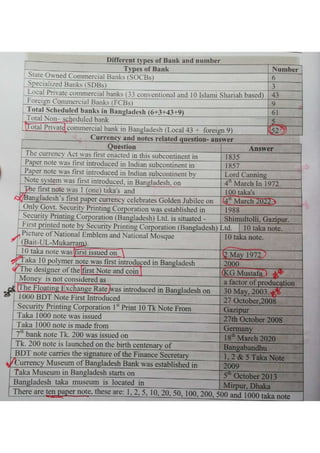 Different types of Bank and number
Types of Bank Number
State Owned Commercial Banks (SOCBs) 6
Specialized Banks (SDBs) 3
Local Private commercial banks (33 conventional and 10 Islami Shariah based) 43
Foreign Commercial Banks (FCBs) 9
Total Scheduled banks in Bangladesh (6+3+43+9) 61
Total Non- scheduled bank 5
Total Private commercial bank in Bangladesh (Local 43 + foreign 9) 52
Currency and notes related question- answer
Question Answer
The currency Act was first enacted in this subcontinent in 1835
Paper note was first introduced in Indian subcontinent in 1857
Paper note was first introduced in Indian subcontinent by Lord Canning
Note system was first introduced, in Bangladesh, on 4th March In 1972
The first note was 1 (one) taka's and 100 taka's
Bangladesh's first paper currency celebrates Golden Jubilee on 4th March 2022
Only Govt. Security Printing Corporation was established in 1988
Security Printing Corporation (Bangladesh) Ltd. is situated - Shimultoli, Gazipur.
First printed note by Security Printing Corporation (Bangladesh) Ltd. 10 taka note.
Picture of National Emblem and National Mosque (Bait-UL-Mukarram). 10 taka note.
10 taka note was first issued on 2 May 1972
Taka 10 polymer note was first introduced in Bangladesh 2000
The designer of the first Note and coin KG Mustafa
Money is not considered as a factor of production
The Floating Exchange Rate was introduced in Bangladesh on 30 May, 2003
1000 BDT Note First Introduced 27 October,2008
Security Printing Corporation 1st Print 10 Tk Note From Gazipur
Taka 1000 note was issued 27th October 2008
Taka 1000 note is made from Germany
7th bank note Tk. 200 was issued on 18th March 2020
Tk. 200 note is launched on the birth centenary of Bangabandhu
BDT note carries the signature of the Finance Secretary 1, 2 & 5 Taka Note
Currency Museum of Bangladesh Bank was established in 2009
Taka Museum in Bangladesh starts on 5th October 2013
Bangladesh taka museum is located in Mirpur, Dhaka
There are ten paper note, these are: 1, 2, 5, 10, 20, 50, 100, 200, 500 and 1000 taka note